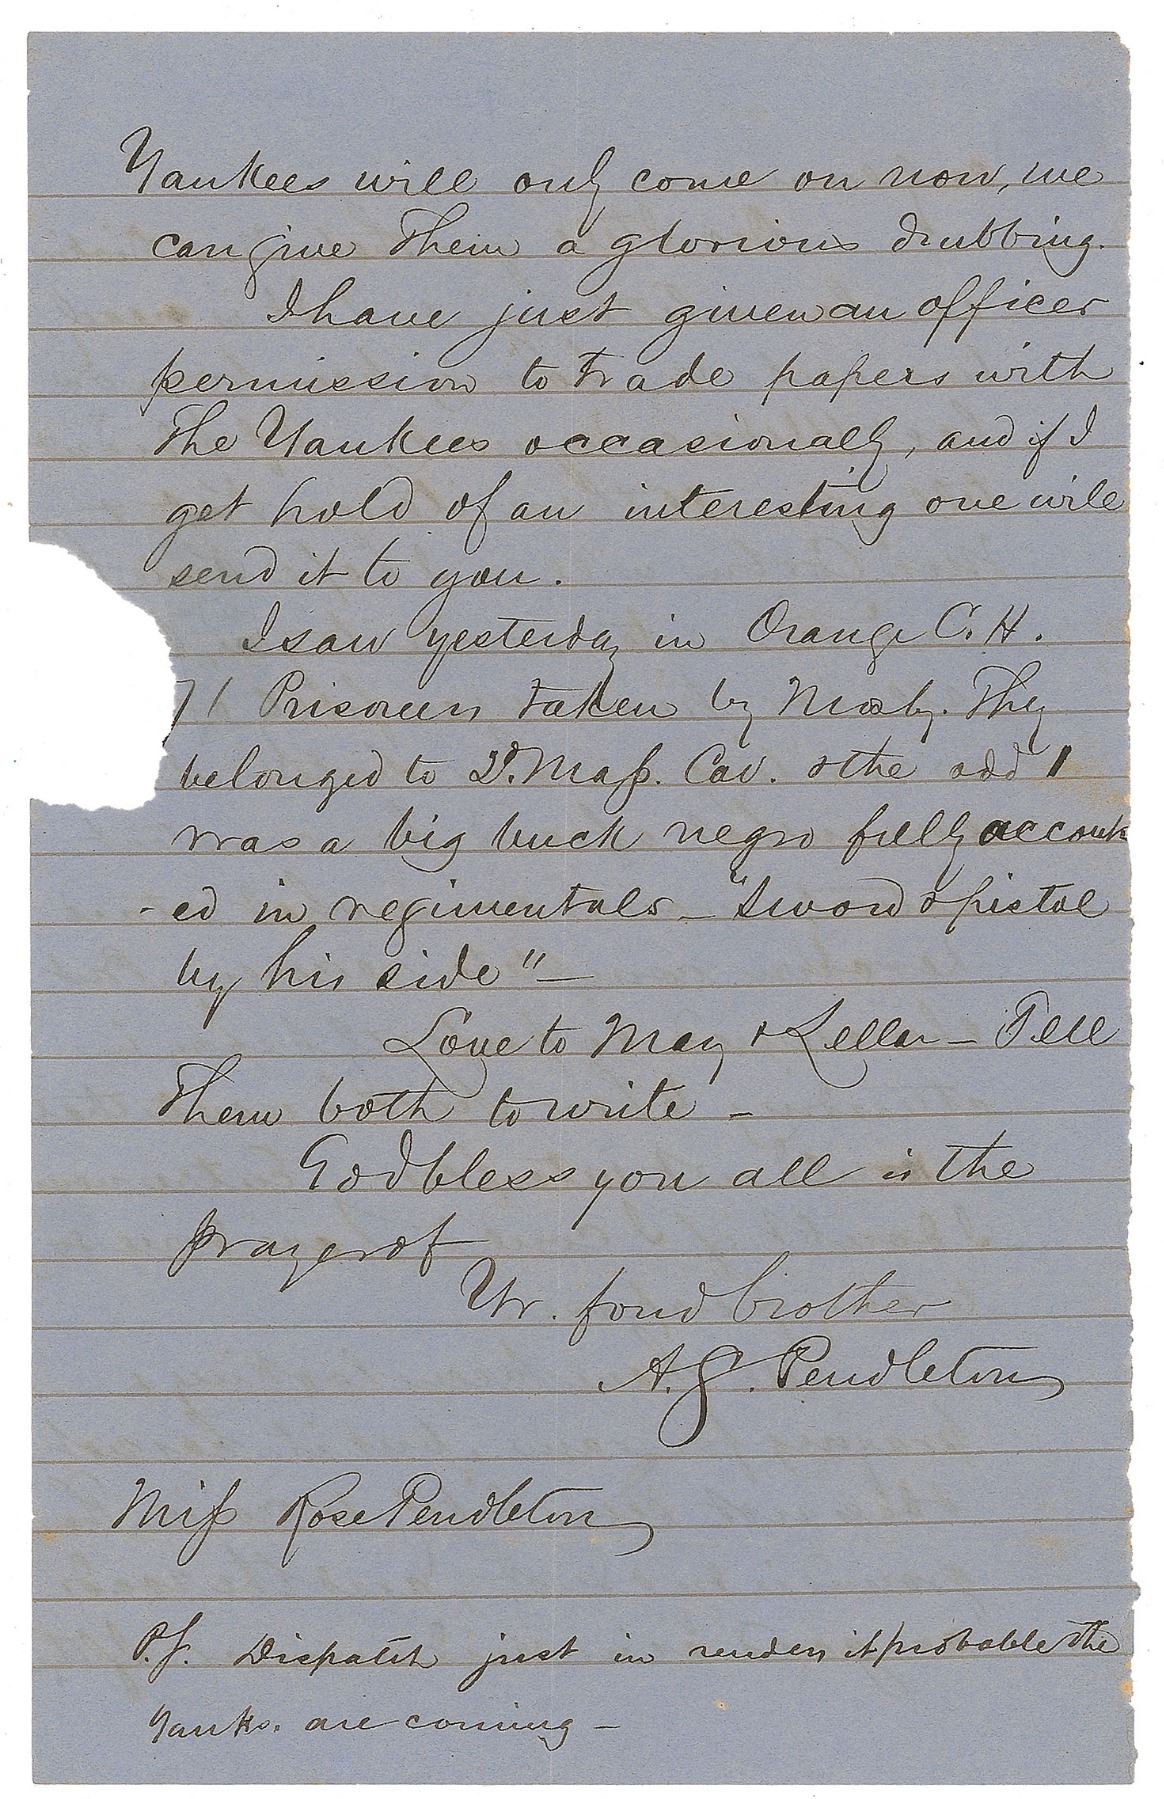 Yankees will only come on now, we
can give them a glorious drubbing.
I have just given an officer
permission to trade papers with
the Yankees occasionally, and if I
get hold of an interesting one will
send it to you.
I saw yesterday in Orange C. H.
71 Prisoners taken by Mosby. They
belonged to 2d. Mass. Cav. & the odd 1
was a big buck negro fully accout
-ed in regimentals - "Sword & pistol
by his side" -
Love to Mary & Lella - Tell
them both to write -
God bless you all is the
prayer of
Yr. fond brother
A. S. Pendleton
Miss Rose Pendleton
P.S. Dispatch just in renders it probable the
Yanks. are coming -